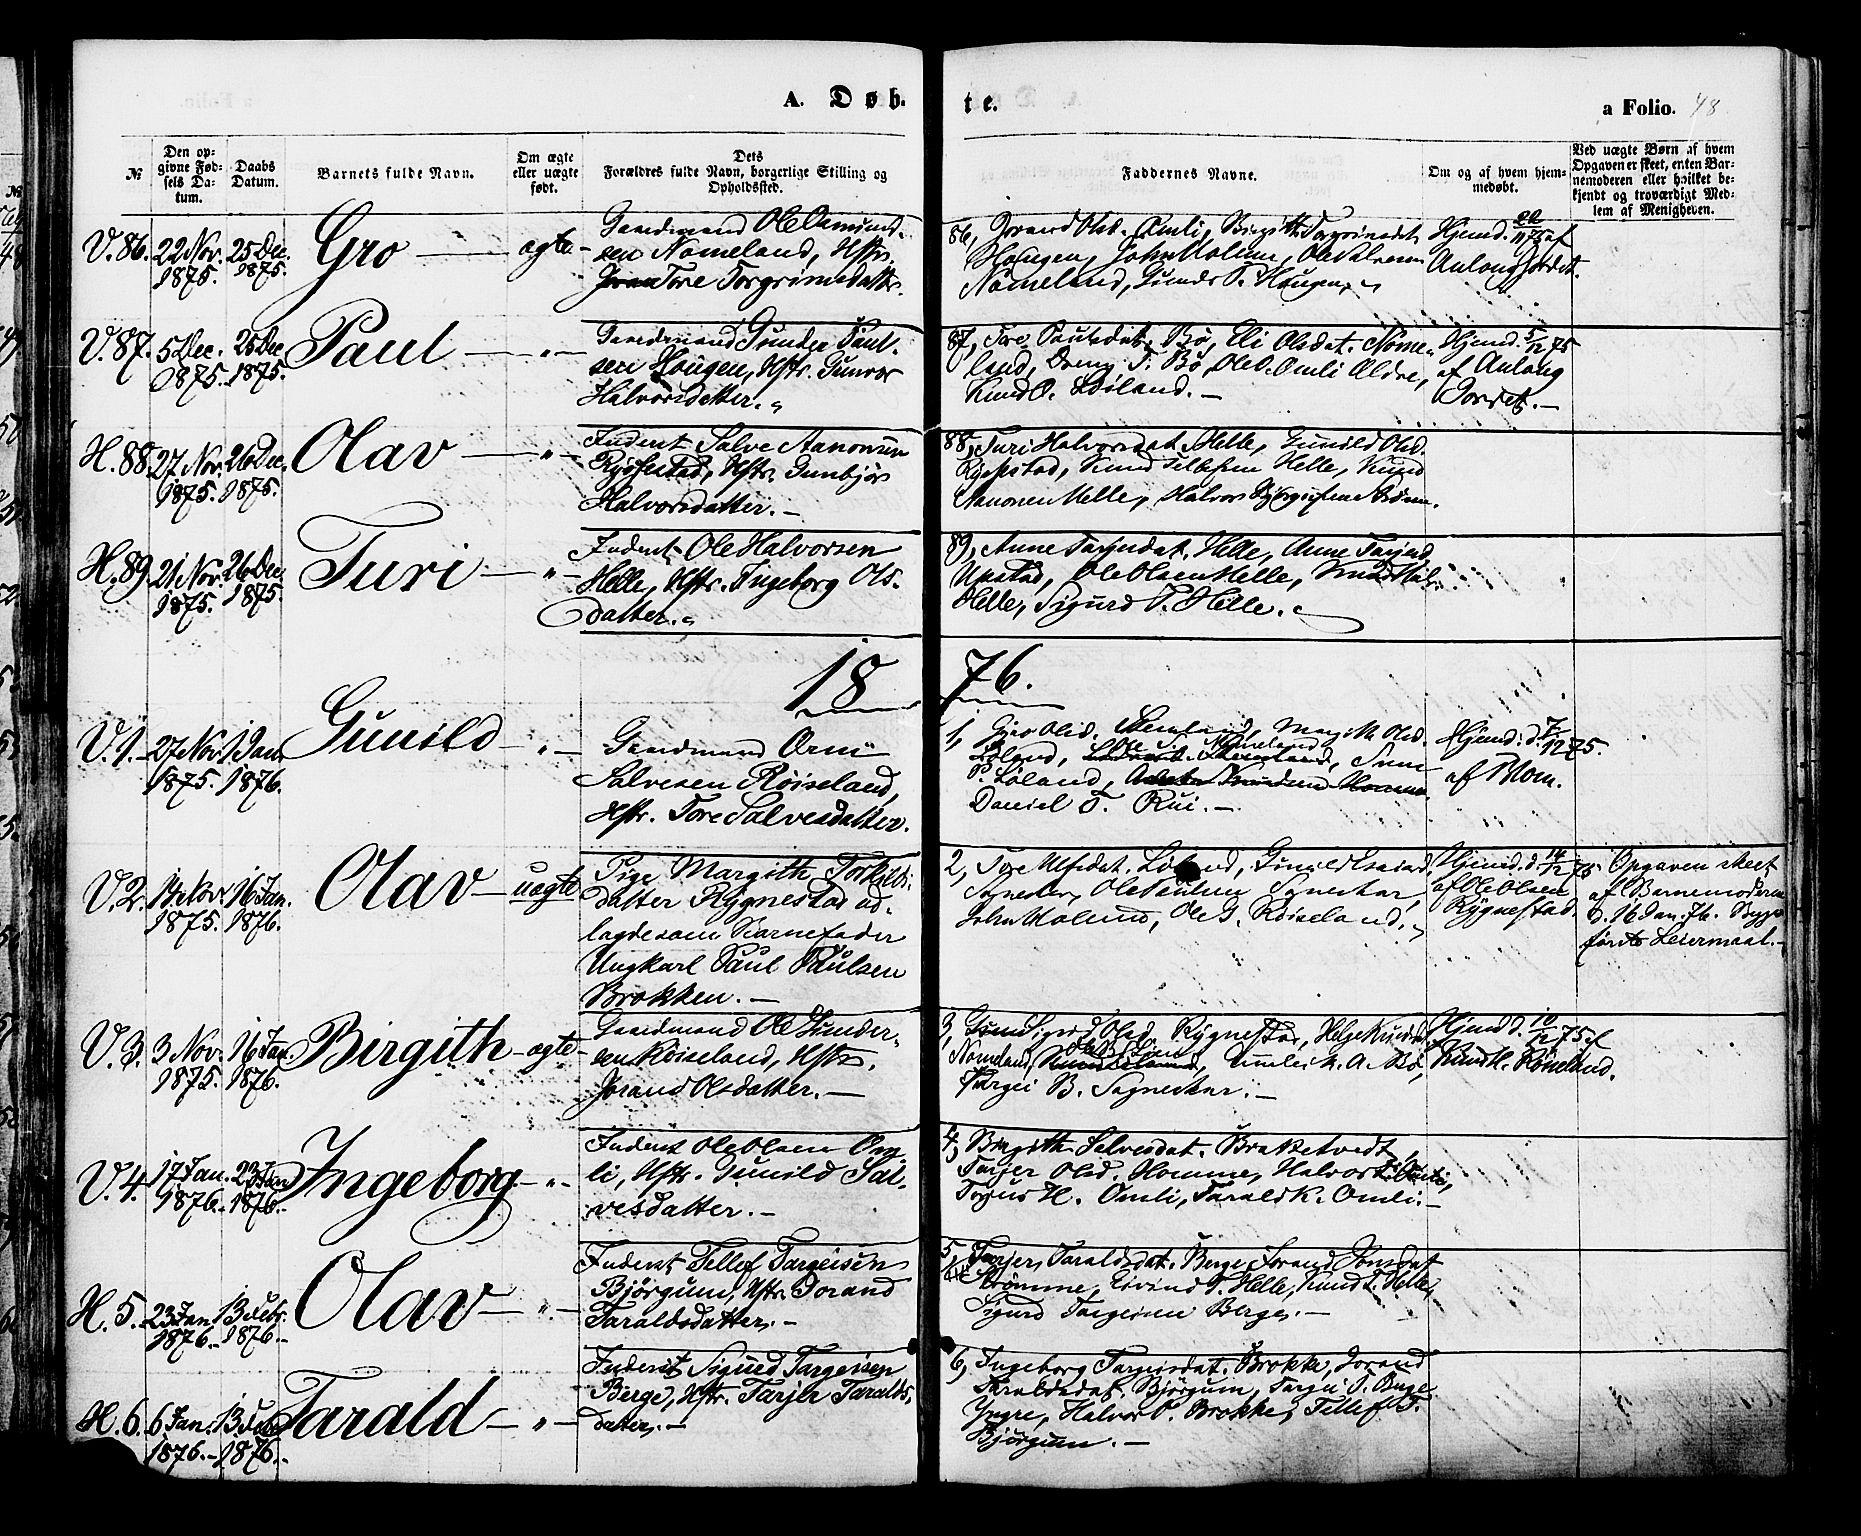 A. Døb. te. a Folio. 48
№
Den op-
givne Fød-
sels Da-
tum.
Daabs
Datum.
Barnets fulde Navn.
Om ægte
eller uægte
født.
Dets
Forældres fulde Navn, borgerlige Stilling og
Opholdssted.
Faddernes Navne.
Om og af hvem hjem-
medøbt.
Ved uægte Børn af hvem
Opgaven er skeet, enten Bar-
nemoderen eller hvilket be-
kjendt og troværdigt Med-
lem af Menigheden.
V. 86. 22 Nov. 1875. 25 Dec. 1875. Gro ægte
Gaardmand Ole Osmund-
sen Nomeland, Hstr.
Tore Torgrimsdatter.
86, Jorand Olsd. Omli, Birgith Torgrimsdat.
Haugen, John Molum, Ole Salvesen
Nomeland, Gunder P. Haugen.
Hjemd. 22/11 75 af
Anlong Jordet.
V. 87. 5 Dec. 1875. 25 Dec. 1875. Paul "
Gaardmand Gunder Paul-
sen Haugen, Hstr. Gunvor
Halvorsdatter.
87, Tore Paulsdat. Bø, Eli Olsdat. Nome-
land, Dreng T. Bø, Ole O. Omli Ældre,
Knud O. Løland.
Hjemd. 5/12 75
af Anlong
Jordet.
H. 88. 27 Nov. 1875. 26 Dec. 1875. Olav "
Inderst Salve Aanonsen
Rysstad, Hstr. Gunbjør
Halvorsdatter.
88, Turi Halvorsdat. Helle, Gunild Olsd.
Rysstad, Knud Tellefsen Helle, Knud
Aanonsen Helle, Halvor
H. 89. 21 Nov. 1875. 26 Dec. 1875. Turi "
Inderst Ole Halvorsen
Helle, Hstr. Ingeborg Ols-
datter.
89, Anne Tarjeisdat. Helle, Anne Tarjeisd.
Upstad, Ole Olsen Helle, Knud
Helle, Sigurd T. Helle.
1876.
V. 1. 27 Nov. 1875. 1 Jan. 1876. Gunild "
Gaardmand Orm
Salvesen Røiseland,
Hstr. Tore Salvesdatter.
1, Gjer Olsd. Margith Olsd.
Løland, Ole S. Nomeland
P. Løland,
Daniel T. Rui.
Hjemd. d. 7/12 75.
af Mom.
V. 2. 14 Nov. 1875. 16 Jan. 1876. Olav uægte
Pige Margith Torkilds-
datter Rygnestad ud-
lagde som Barnefader
Ungkarl Paul Paulsen
Brokken.
2, Tore Ulfsdat. Løland, Gunild
Ole Paulsen
John Molund, Ole G. Røiseland.
Hjemd. d. 14/12 75
af Ole Olsen
Rygnestad.
Opgaven skeet
af Barnemoderen
d. 16 Jan. 76. Begges
første Leiermaal.
V. 3. 3 Nov. 1875. 16 Jan. 1876. Birgith ægte
Gaardmand Ole Gunder-
sen Røiseland, Hstr.
Jorand Olsdatter.
3, Sigrid Olsd. Rygnestad, Helge Knudsd.
Nomeland, A. Bø,
Targei B.
Hjemd. d. 10/12 75 af
Knud K. Røiseland.
V. 4. 17 Jan. 1876. 23 Jan. 1876. Ingeborg "
Inderst Ole Olsen Om-
li, Hstr. Gunild Sal-
vesdatter.
4, Birgith Salvesdat. Brokketvedt,
Tarjer Olsd. Homme, Halvor Omli,
Torjus H. Omli, Tarald K. Omli.
H. 5. 23 Jan. 1876. 13 Febr. 1876. Olav "
Inderst Tellef Targeisen
Bjørgum, Hstr. Jorand
Taraldsdatter.
5, Tarjer Taraldsdat. Berge, Jorand Jonsdat.
Strømme, Eivind T. Helle, Knud T. Helle,
Sigurd Targeisen Berge.
H. 6. 6 Jan. 1876. 13 Febr. 1876. Tarald "
Inderst Sigurd Targeisen
Berge, Hstr. Tarjer Taralds-
datter.
6, Ingeborg Targeisdat. Brokke, Jorand
Taraldsdat. Bjørgum, Targei P. Berge
Yngre, Halvor P. Brokke, Tellef T.
Bjørgum.